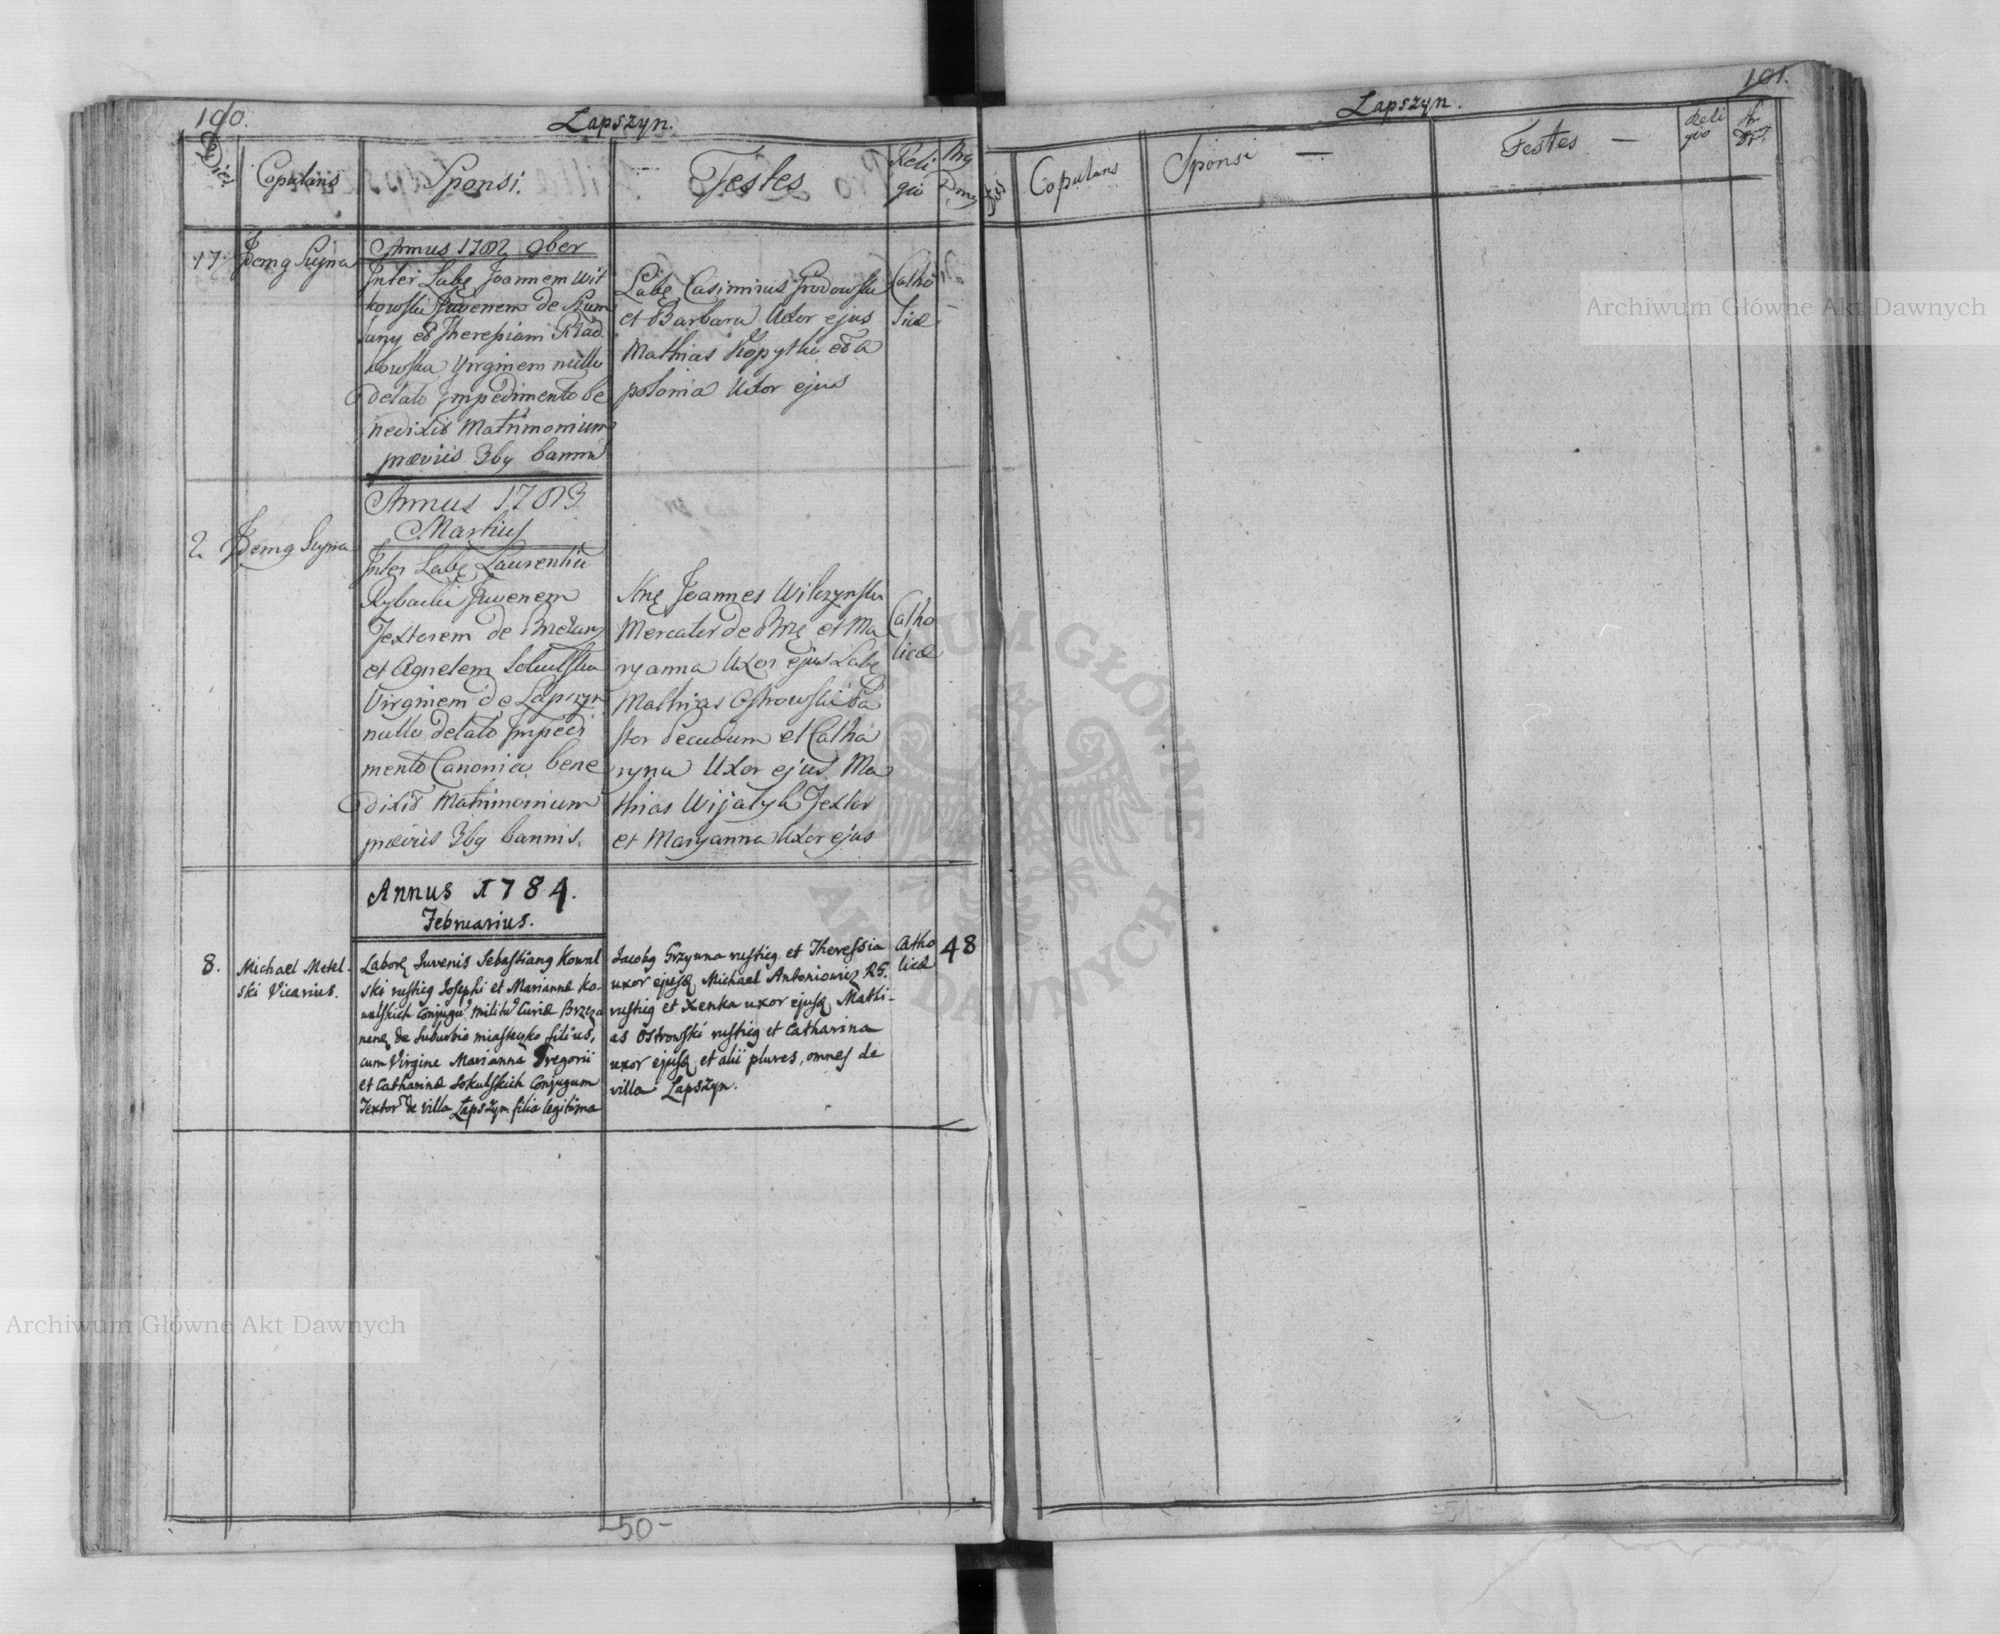 100.
Łapszyn.
Dies
Copulans
Sponsi.
Testes
Reli
gio
Nrg
Dmg
17
Idemg Supra
Annus 1782 9ber
Inter Labę Joannem Wit
kowski Juvenem de
et Theresiam
Virginem nullo
detato Impedimento be
nedixit Matrimonium
præviis 3bg bannis
Labę Casimirus Grodowski
et Barbara Uxor ejus
Mathias Kopytki et A
polonia Uxor ejus
Catho
licæ
Annus 1783
Martius
2
Idemg Supra
Inter Labę Laurentiũ
Rybacki Juvenem
Textorem de Brzeżany
et Agnetem Sokulska
Virginem de Lapszyn
nullo detato Impedi
mento Canonico bene
dixit Matrimonium
præviis 3bg bannis.
Joannes Wilczynski
Mercator de Brzę et Ma
ryanna Uxor ejus Labę
Mathias Ostrowski Pa
stor Pecudum et Catha
ryna Uxor ejus Ma
thias Wijatyk Textor
et Maryanna Uxor ejus
Catho
licæ
Annus 1784.
Februarius.
8.
Michael Metel
ski Vicarius.
Laborę Juvenis Sebastiang Kowal
ski rusticg Josephi et Mariannæ Ko-
walskich Conjugũ militũ Curiæ Brzeża
nenę de Suburbio miasteczko filius,
cum Virgine Marianna Gregorii
et Catharinæ Sokulskich Conjugum
Textorũ de villa Łapszyn filia legitima
Jacobg Grzywna rusticg et Theressia
uxor ejusq Michael Antoniowicz RG.
rusticg et Xenka uxor ejusq Mathi-
as Ostrowski rusticg et Catharina
uxor ejusq et alii plures, omnes de
villa Łapszyn.
Catho
licæ
48
50-
101.
Łapszyn.
Dies
Copulans
Sponsi —
Testes —
Reli
gio
51
Archiwum Główne Akt Dawnych
Archiwum Główne Akt Dawnych
ARCHIWUM GŁÓWNE AKT DAWNYCH